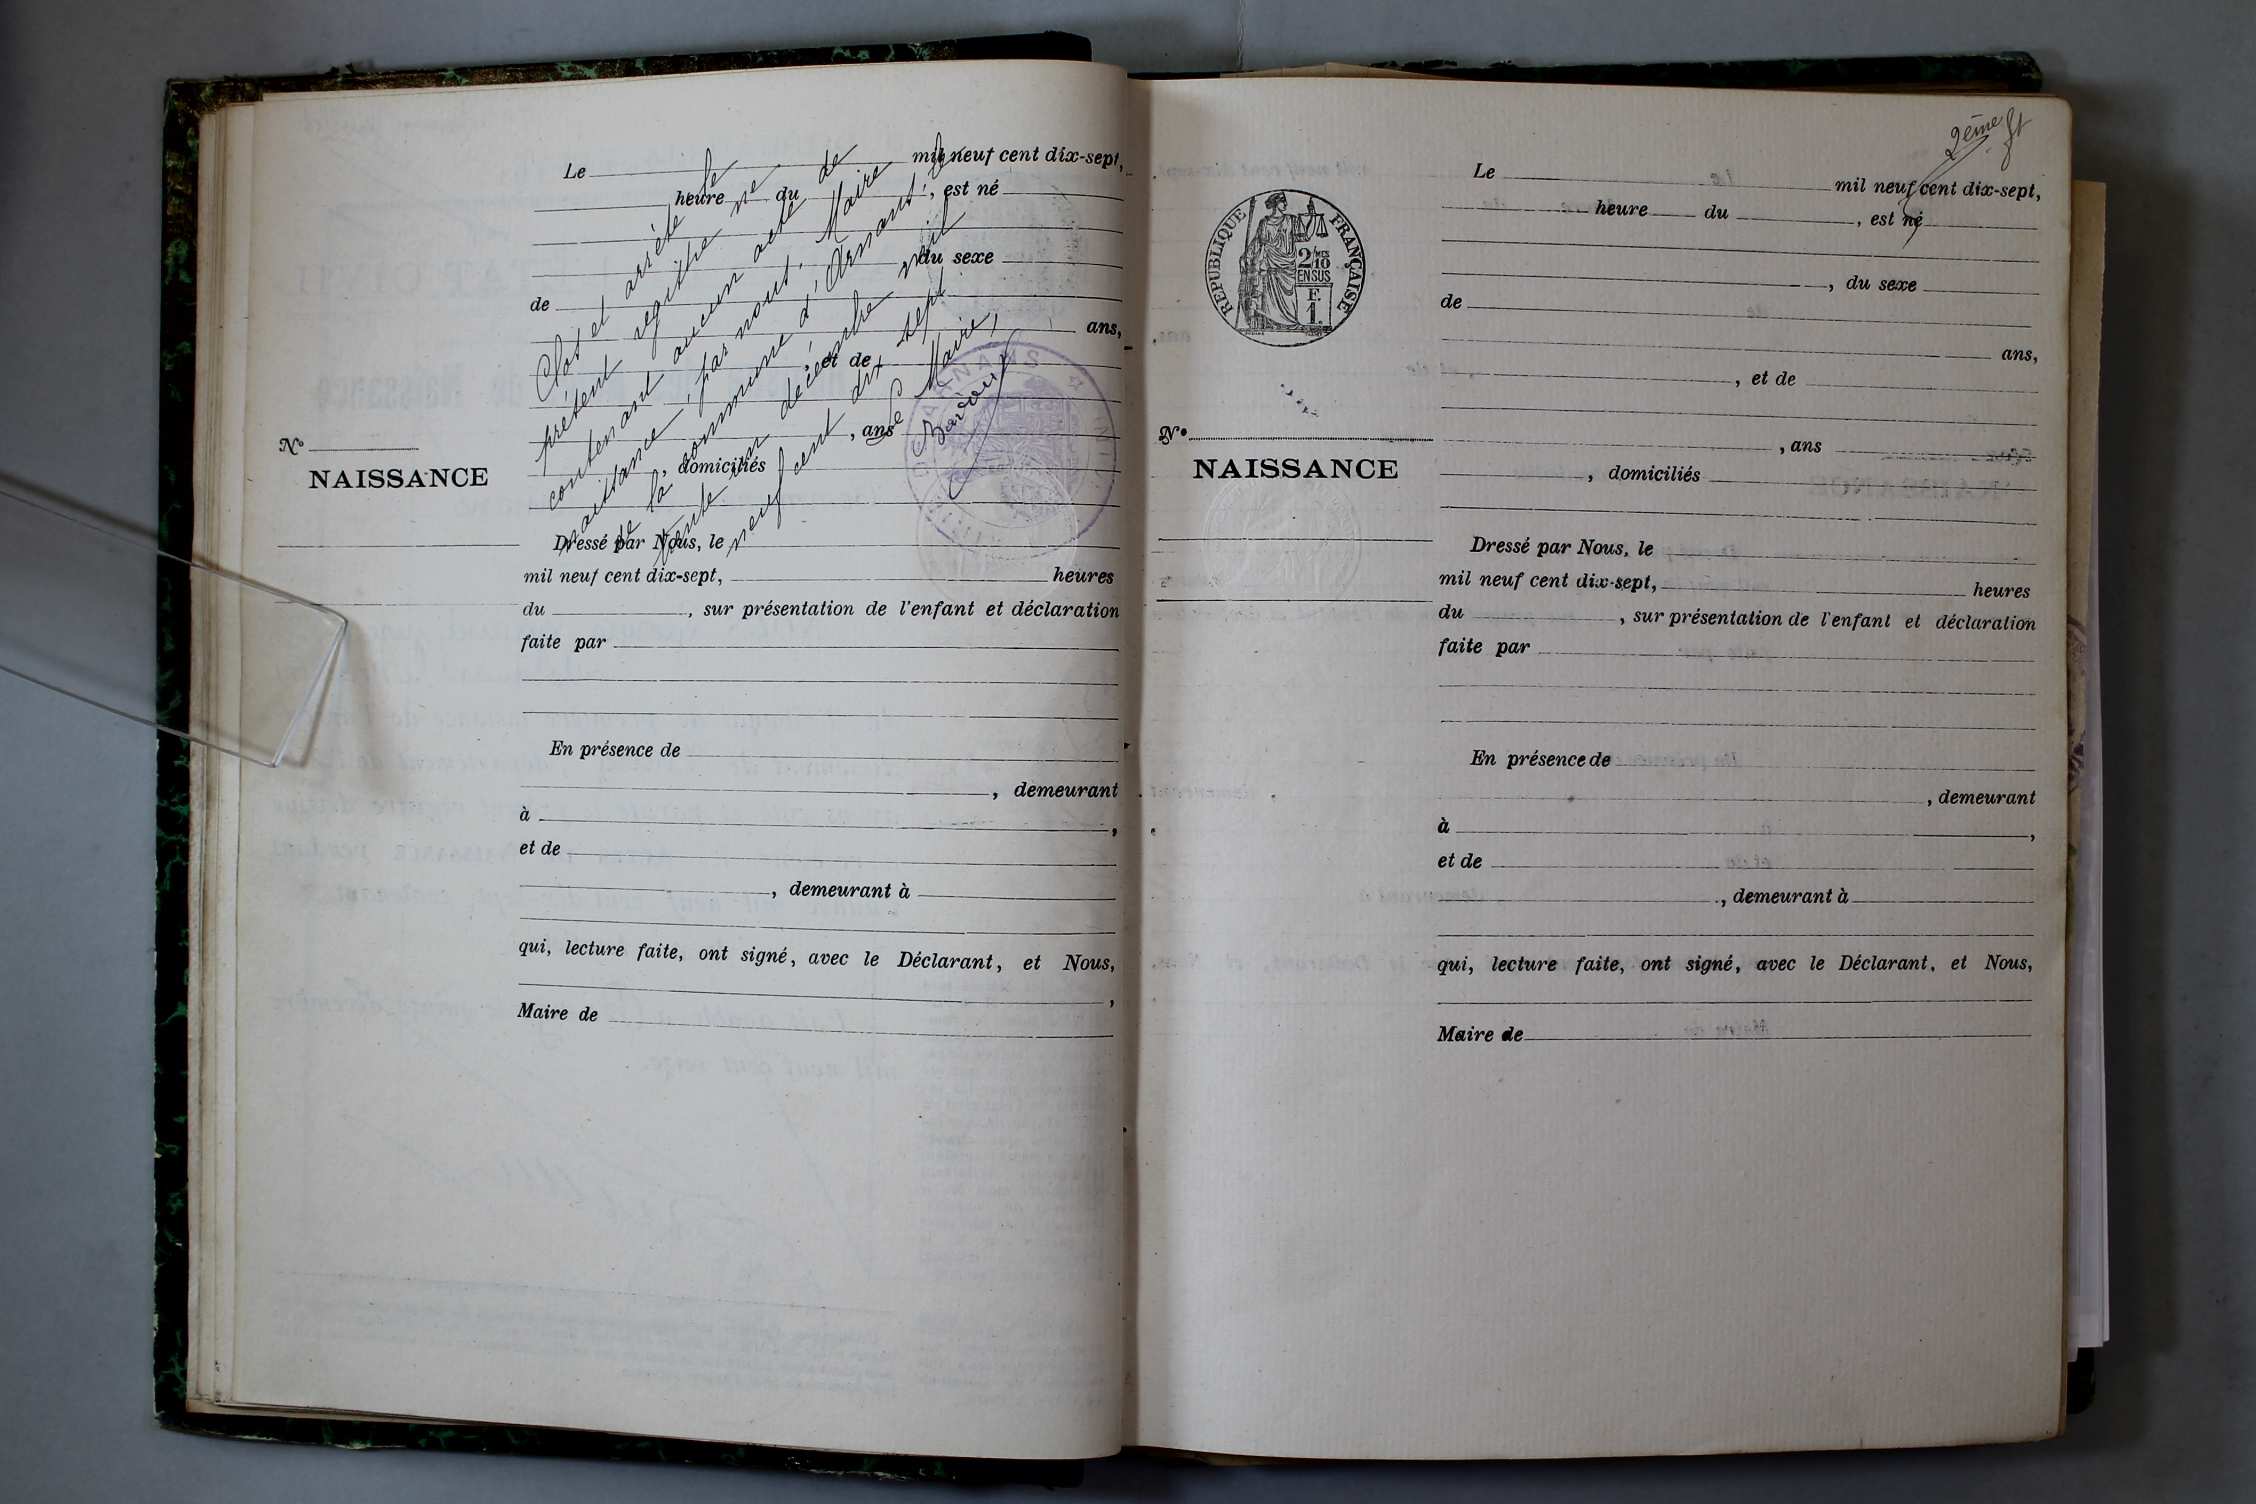 Le mil neuf cent dix-sept,
heure du , est né
, du sexe
de
ans,
, et de
, ans
, domiciliés
Dressé par Nous, le
mil neuf cent dix-sept, heures
du , sur présentation de l'enfant et déclaration
faite par
En présence de
, demeurant
à ,
et de
, demeurant à
qui, lecture faite, ont signé, avec le Déclarant, et Nous,
,
Maire de
Clos et arrêté le
présent registre ne
contenant aucun acte de
naissance, par nous, Maire
de la commune d'Arnans, le
trente un décembre mil
neuf cent dix sept
Le Maire,
N°
NAISSANCE
2ème ft
Le mil neuf cent dix-sept,
heure du , est né
, du sexe
de
ans,
, et de
, ans
, domiciliés
Dressé par Nous, le
mil neuf cent dix-sept, heures
du , sur présentation de l'enfant et déclaration
faite par
En présence de
, demeurant
à ,
et de
, demeurant à
qui, lecture faite, ont signé, avec le Déclarant, et Nous,
Maire de
RÉPUBLIQUE FRANÇAISE
2/10MES
EN SUS
F.
1.
N°
NAISSANCE